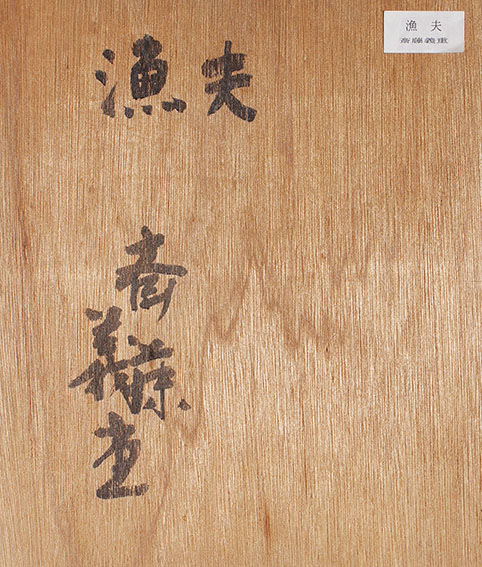 漁夫
斎藤義重
漁 夫
斎藤義重